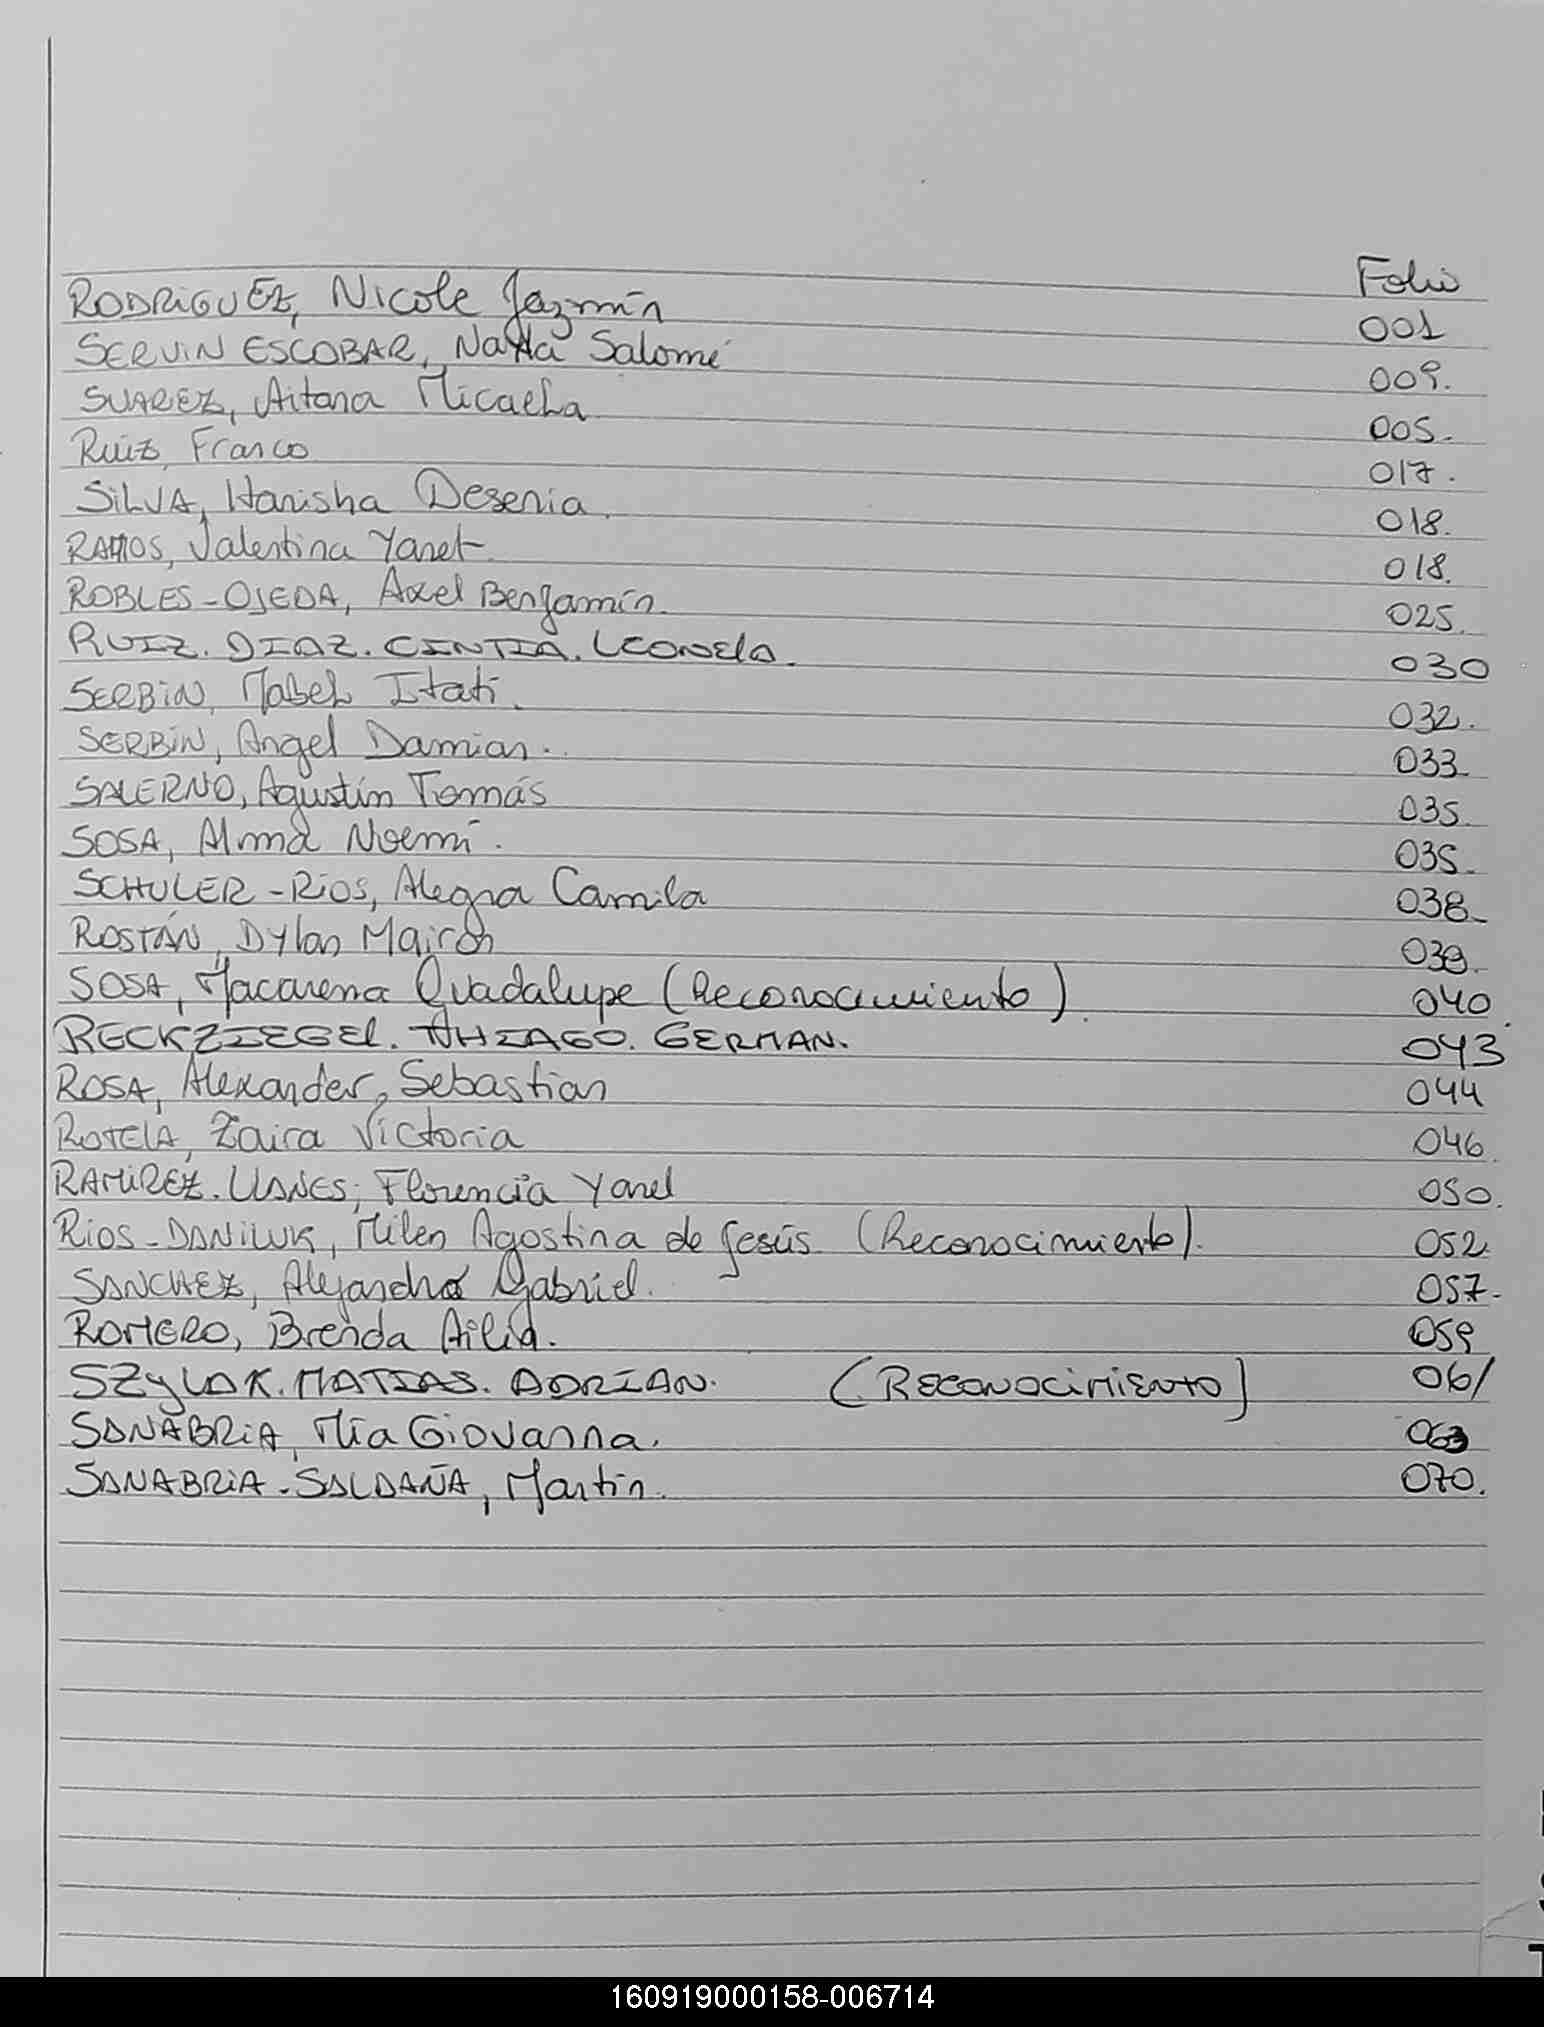 Folio
RODRIGUEZ, Nicole Jazmín 001
SERVIN ESCOBAR, Salomé 009.
SUAREZ, Aitana Micaela 005.
Ruiz, Franco 017.
SILVA, Hanisha Desenia. 018.
RAMOS, Valentina Yanet 018.
ROBLES-OJEDA, Axel Benjamín. 025.
RUIZ. DIAZ. CINTIA. Leonela. 030
SERBIN, Mabel Itatí. 032.
SERBIN, Angel Damian. 033.
SALERNO, Agustín Tomás 035.
SOSA, Alma Noemí. 035.
SCHULER-Ríos, Alegra Camila 038.
ROSTÁN, Dylan Mairon 039.
SOSA, Macarena Guadalupe (Reconocimiento). 040.
RECKZIEGEL. THIAGO. GERMAN. 043
ROSA, Alexander, Sebastian 044
ROTELA, Zaira Victoria 046.
RAMIREZ. LLANES, Florencia Yanel 050.
Ríos-DANILUK, Milen Agostina de Jesús. (Reconocimiento). 052.
SANCHEZ, Alejandro Gabriel. 057.
ROMERO, Brenda Ailin. 059
SZYLAK. MATIAS. ADRIAN. (RECONOCIMIENTO) 061
SANABRIA, Mía Giovanna. 063
SANABRIA-SALDAÑA, Martín. 070.
160919000158-006714